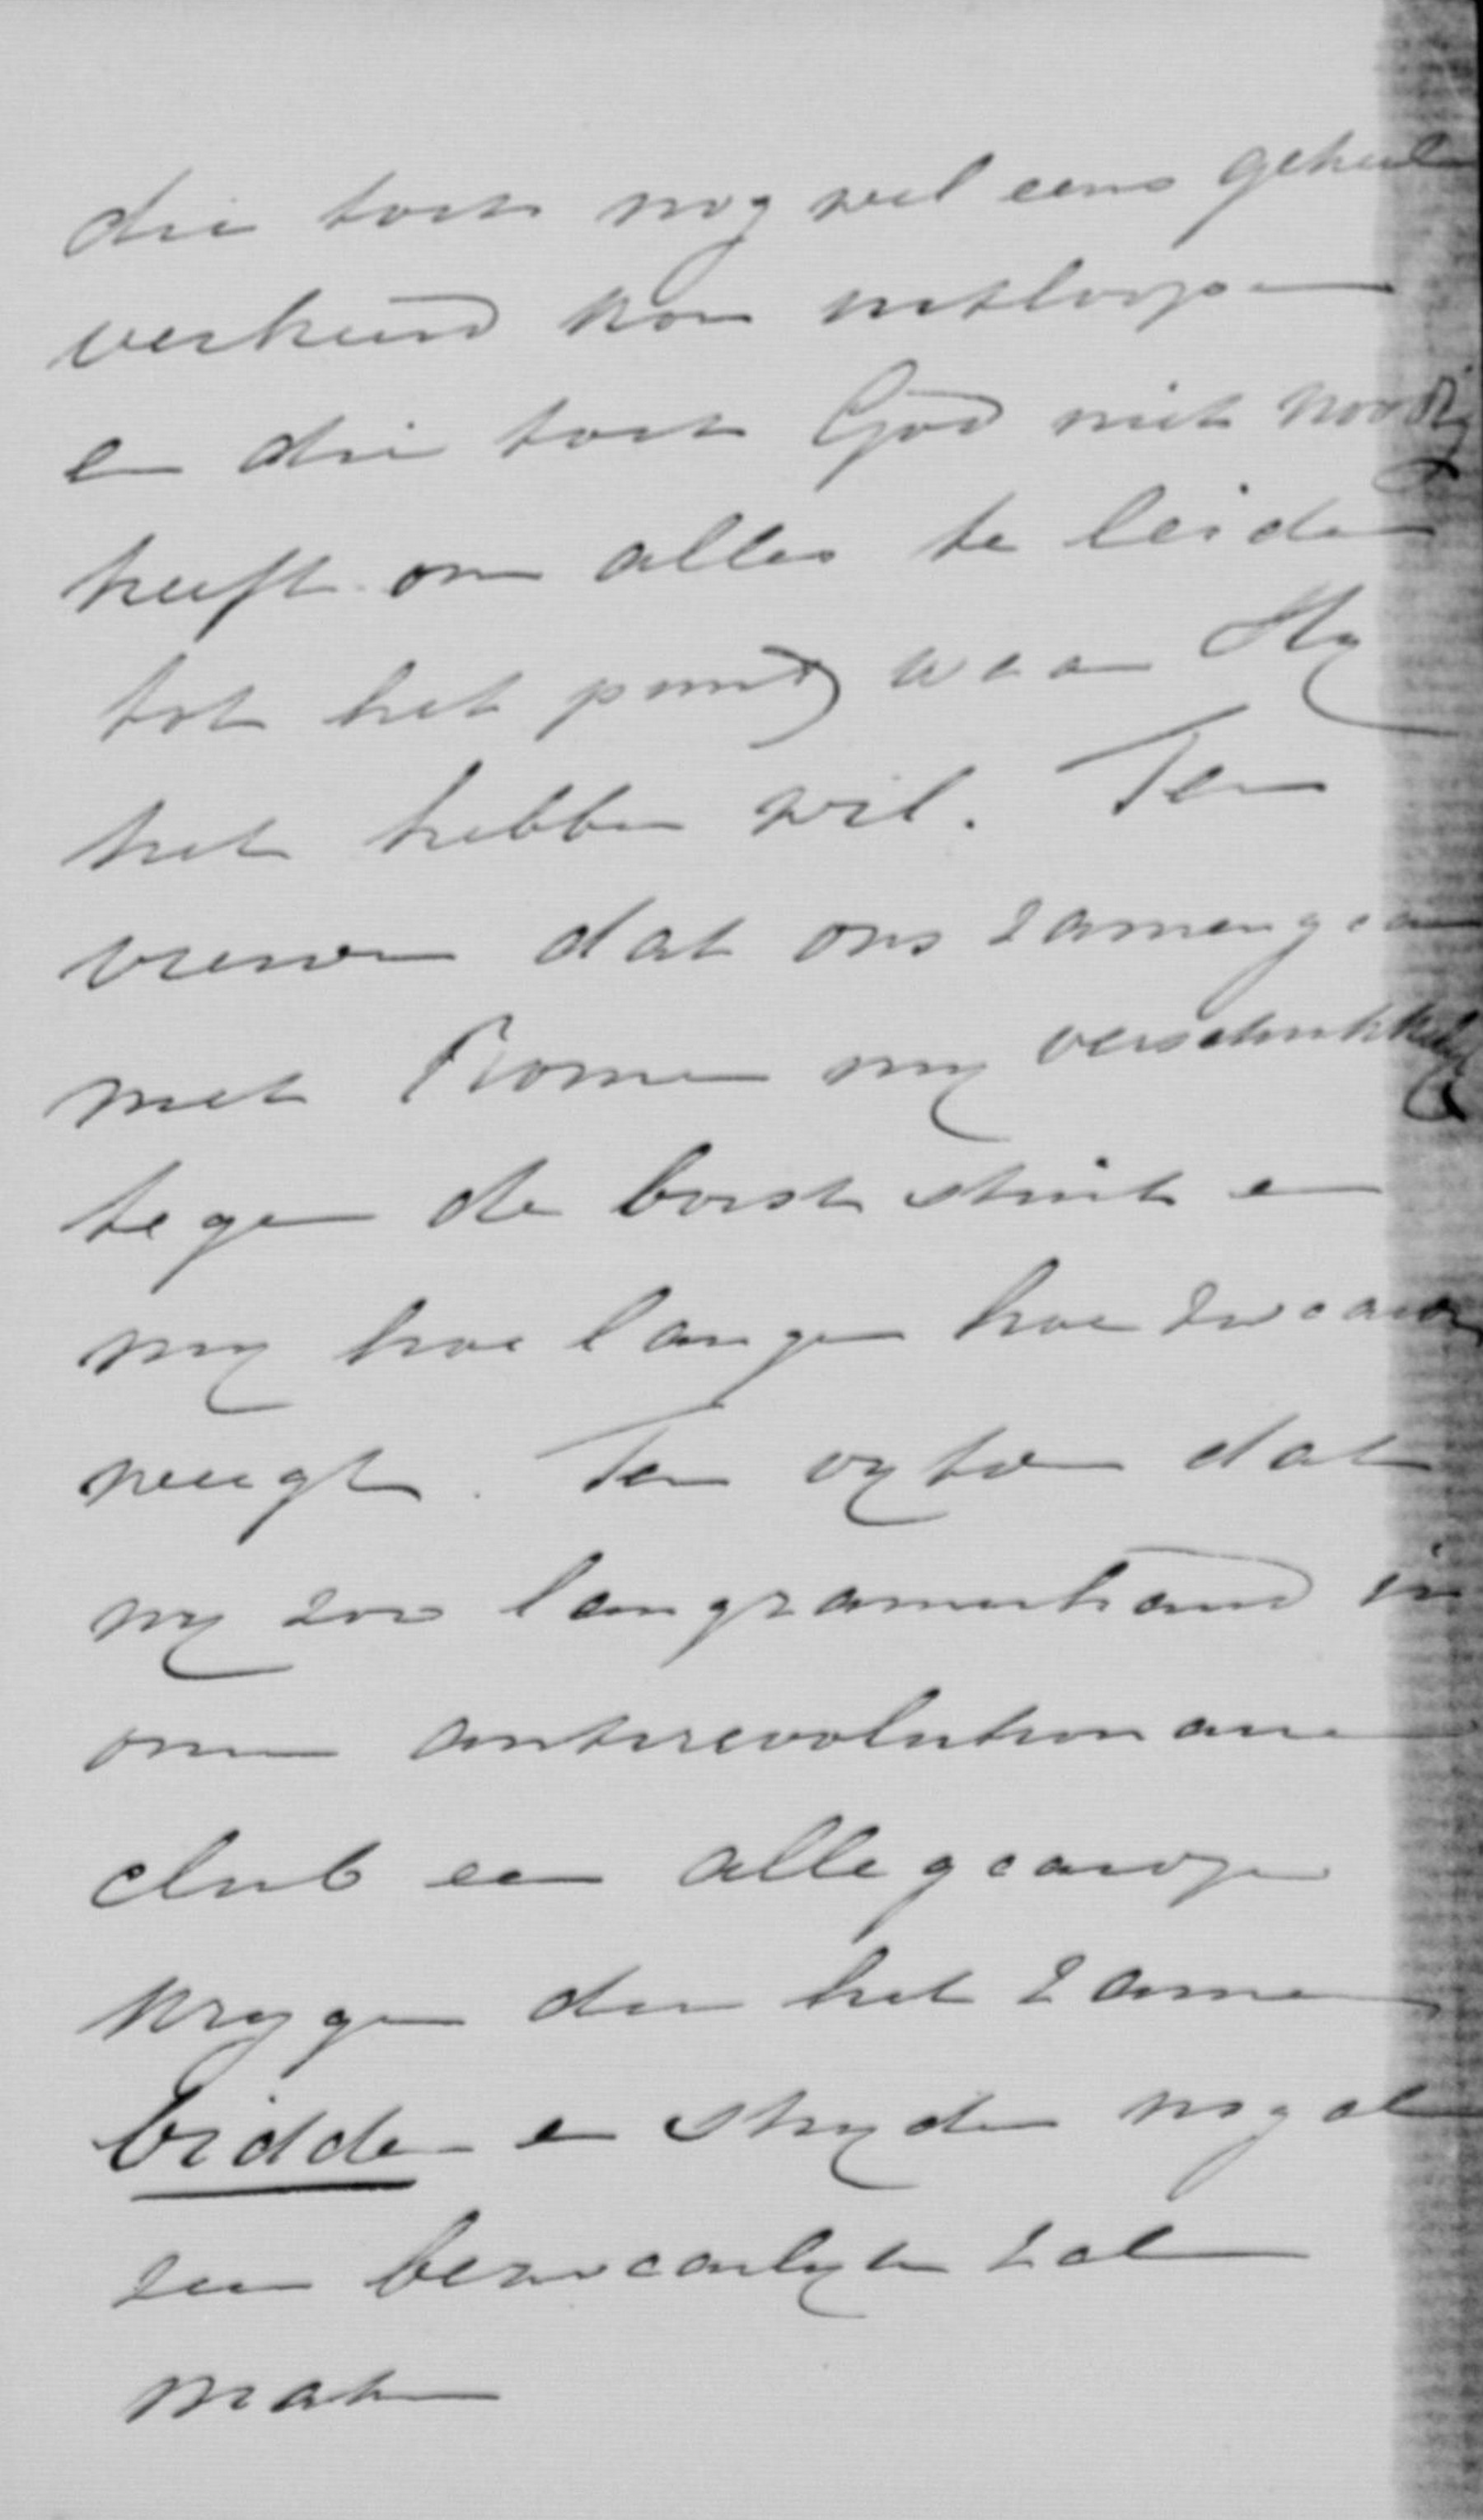 die toch nog wel eens geheel
verkeerd kon uitloopen
en die toch God niet noodig
heeft om alles te leiden
tot het punt waar Hy
het hebben wil. Ten
vieren dat ons zamengaan
met Rome my verschrikkelyk
tegen de borst stuit en
my hoe langer hoe zwaarder
weegt. Ten vyfden dat
wy zoo langzamerhand in
onze antirevolutionaire
club een allegaartje
krygen die het zamen
bidden en stryden nog al
zeer bezwaarlyk zal
maken